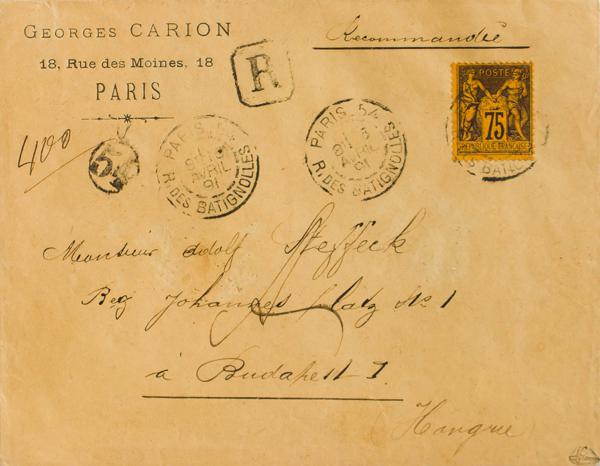 GEORGES CARION
18, Rue des Moines, 18
PARIS
Recommandée
R
400
54
PARIS
AVRIL
91
R. DES BATIGNOLLES
PARIS 54
AVRIL
91
R. DES BATIGNOLLES
POSTE
75
REPUBLIQUE FRANÇAISE
Monsieur Adolf Steffeck
Johannes platz No 1
à Budapest I
Hongrie